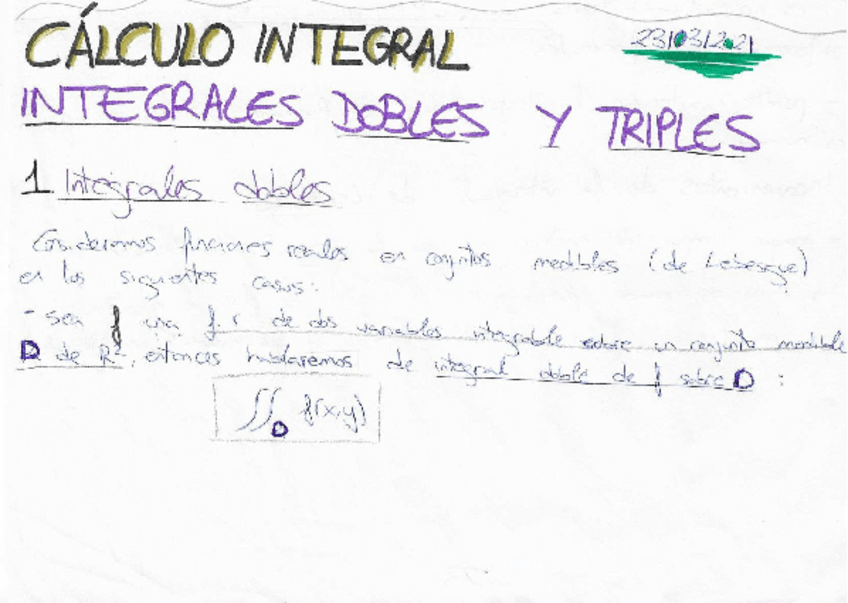 CÁLCULO INTEGRAL
23/03/2021
INTEGRALES DOBLES Y TRIPLES
1 Integrales dobles
Consideremos funciones reales en conjuntos medibles (de Lebesgue)
en los siguientes casos:
- sea f una f.r de dos variables integrable sobre un conjunto medible
D de R², entonces hablaremos de integral doble de f sobre D :
∬D f(x,y)